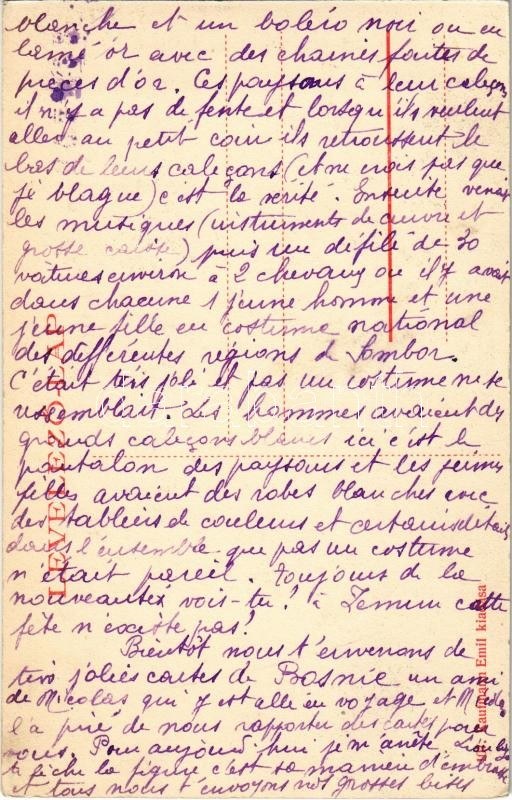 blanche et un boléro noir ou en
lamé or avec des chaines faites de
pièces d'or. Ces paysans à leur caleçon
il n'y a pas de fente et lorsqu'ils veulent
aller au petit coin ils retroussent le
bas de leurs caleçons (et ne crois pas que
je blague) c'est la vérité. Ensuite venait
les musiques (instruments de cuivre et
grosse caisse) puis un défilé de 30
voitures environ à 2 chevaux où il y avait
dans chacune 1 jeune homme et une
jeune fille en costume national
des différentes régions de Sombor.
C'était très joli et pas un costume ne se
ressemblait. Les hommes avaient des
grands caleçons blancs ici c'est le
pantalon des paysans et les jeunes
filles avaient des robes blanches avec
des tabliers de couleurs et certains détails
dans l'ensemble que pas un costume
n'était pareil. Toujours de la
nouveauté, vois-tu! à Zemun cette
fête n'existe pas!
Bientôt nous t'enverrons de
très jolies cartes de Bosnie un ami
de Nicolas qui y est allé en voyage et Nicolas
l'a prié de nous rapporter des cartes pour
vous. Pour aujourd'hui je m'arrête.
te lèche la figure c'est sa manière d'embrasser
et tous nous t'envoyons nos grosses bises
LEVELEZŐ-LAP
Kaufmann Emil kiadása